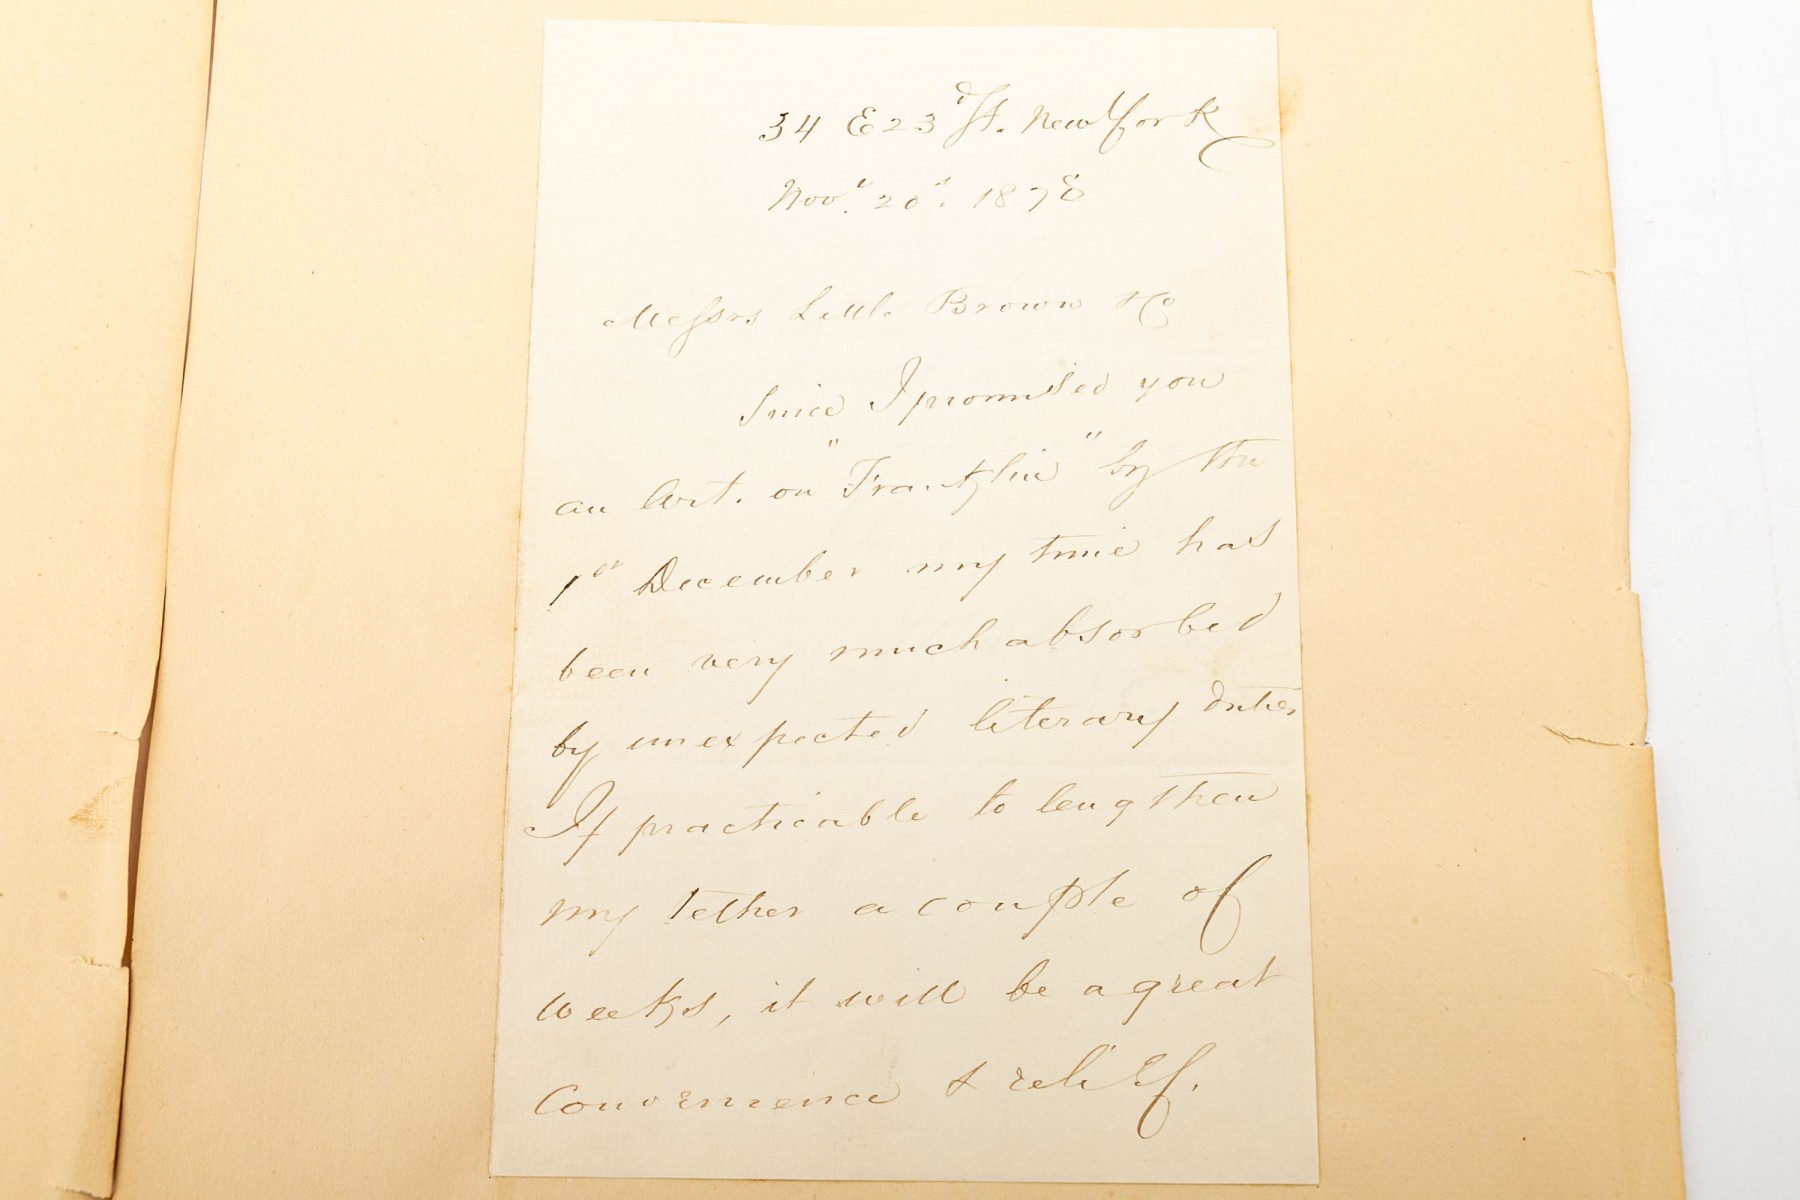 34 E 23d St. New York
Nov. 20. 1878
Messrs Little Brown & Co
Since I promised you
an Art. on "Franklin" by the
1st December my time has
been very much absorbed
by unexpected literary duties
If practicable to lengthen
my tether a couple of
weeks, it will be a great
convenience & relief.